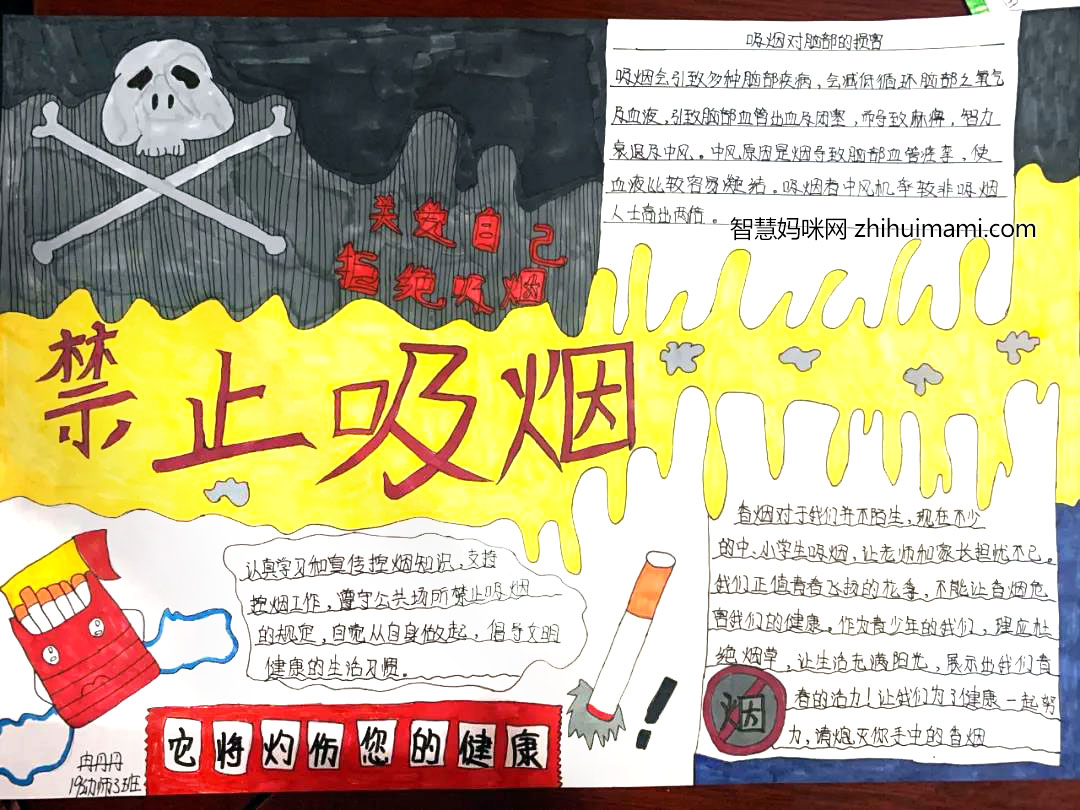 吸烟对脑部的损害
吸烟会引致多种脑部疾病，会减低循环脑部之氧气
及血液，引致脑部血管出血及闭塞，而导致麻痹，智力
衰退及中风。中风原因是烟导致脑部血管痉挛，使
血液比较容易凝结。吸烟者中风机率较非吸烟
人士高出两倍。
智慧妈咪网 zhihuimami.com
关爱自己
拒绝吸烟
禁止吸烟
认真学习和宣传控烟知识，支持
控烟工作，遵守公共场所禁止吸烟
的规定，自觉从自身做起，倡导文明
健康的生活习惯。
香烟对于我们并不陌生，现在不少
的中、小学生吸烟，让老师和家长担忧不已。
我们正值青春飞扬的花季，不能让香烟危
害我们的健康。作为青少年的我们，理应杜
绝烟草，让生活充满阳光，展示出我们青
春的活力！让我们为了健康一起努
力，请熄灭你手中的香烟
烟
它将灼伤您的健康
冉丹丹
19幼师3班